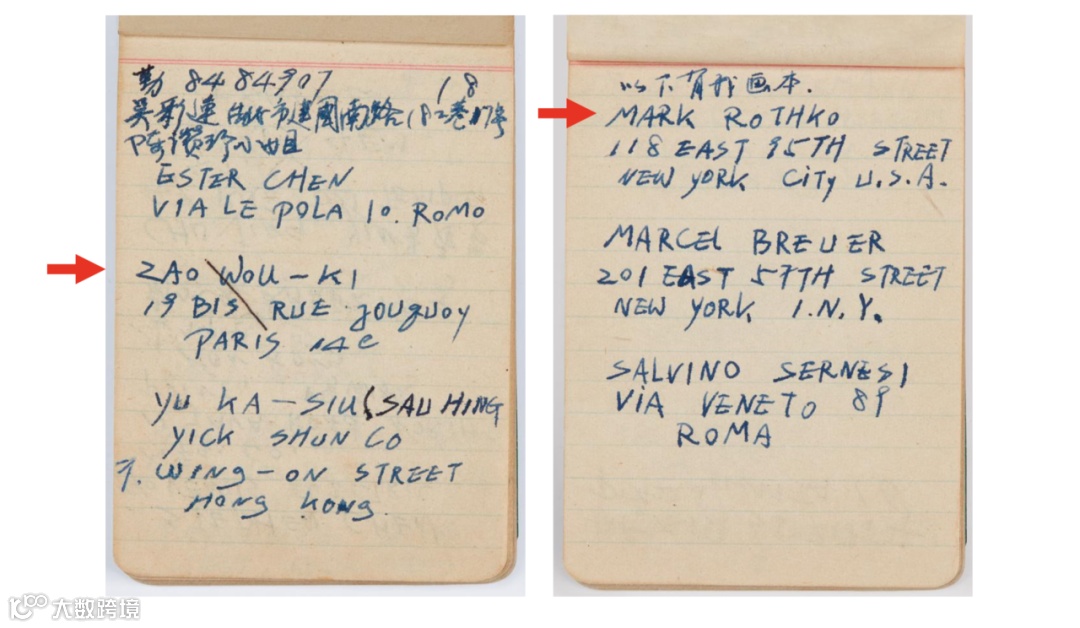 勤 8484907 18
吴彩連 台北市建國南路1段2巷17号
陳讚珍小姐
ESTER CHEN
VIA LE POLA 10. ROMO
ZAO WOU-KI
19 BIS RUE JOUGUOY
PARIS 14e
YU KA-SIU (SAU HING
YICK SHUN CO
7. WING-ON STREET
HONG KONG
以下有我画本.
MARK ROTHKO
118 EAST 95TH STREET
NEW YORK CITY U.S.A.
MARCEL BREUER
201 EAST 57TH STREET
NEW YORK 1.N.Y.
SALVINO SERNESI
VIA VENETO 89
ROMA
大数跨境